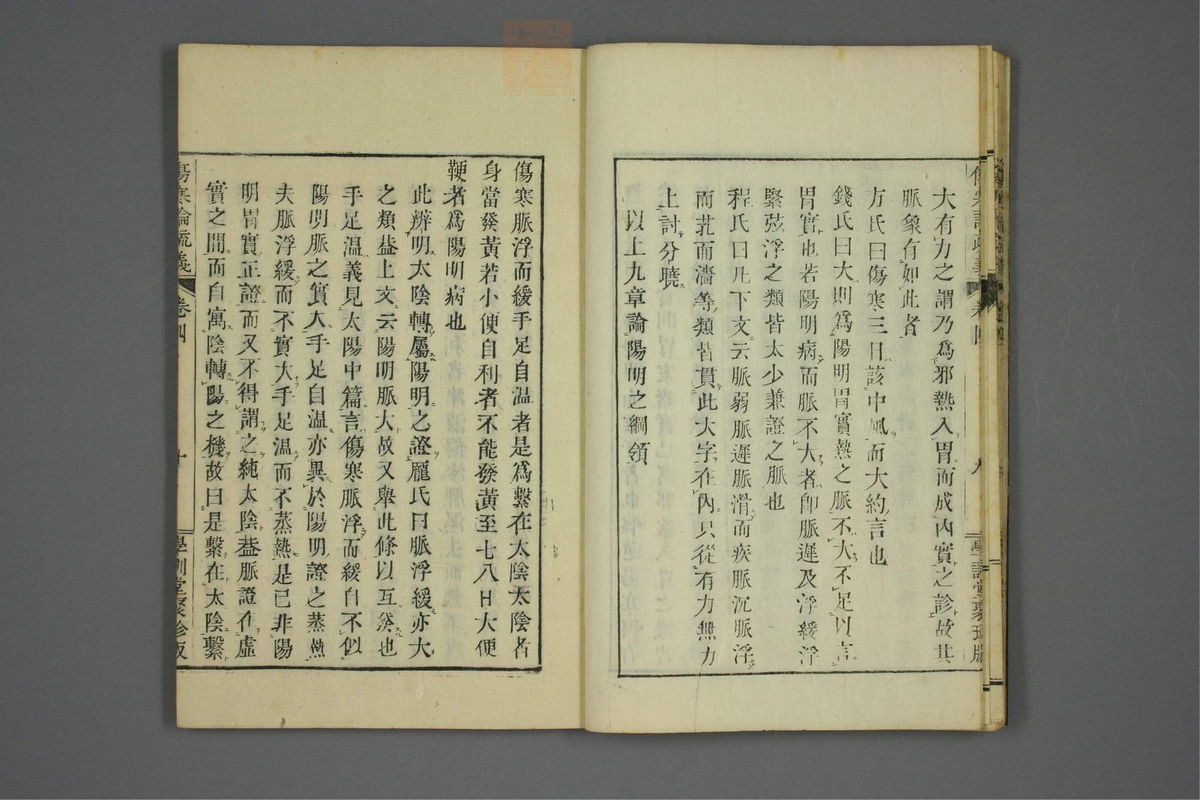 大有力之謂乃爲邪熱入胃而成內實之診故其
脈象有如此者
方氏曰傷寒三日該中風而大約言也
錢氏曰大則爲陽明胃實熱之脈不大不足以言
胃實也若陽明病而脈不大者卽脈遲及浮緩浮
緊弦浮之類皆太少兼證之脈也
程氏曰凡下文云脈弱脈遲脈滑而疾脈沉脈浮
而芤而濇等類皆貫此大字在內只從有力無力
上討分曉
以上九章論陽明之綱領
傷寒脈浮而緩手足自温者是爲繫在太陰太陰者
身當發黃若小便自利者不能發黃至七八日大便
鞕者爲陽明病也
此辨明太陰轉屬陽明之證龐氏曰脈浮緩亦大
之類葢上文云陽明脈大故又舉此條以互發也
手足温義見太陽中篇言傷寒脈浮而緩自不似
陽明脈之實大手足自温亦異於陽明證之蒸熱
夫脈浮緩而不實大手足温而不蒸熱是已非陽
明胃實正證而又不得謂之純太陰葢脈證在虛
實之間而自寓陰轉陽之機故曰是繫在太陰繫
傷寒論疏義 卷四 十 學訓堂聚珍版